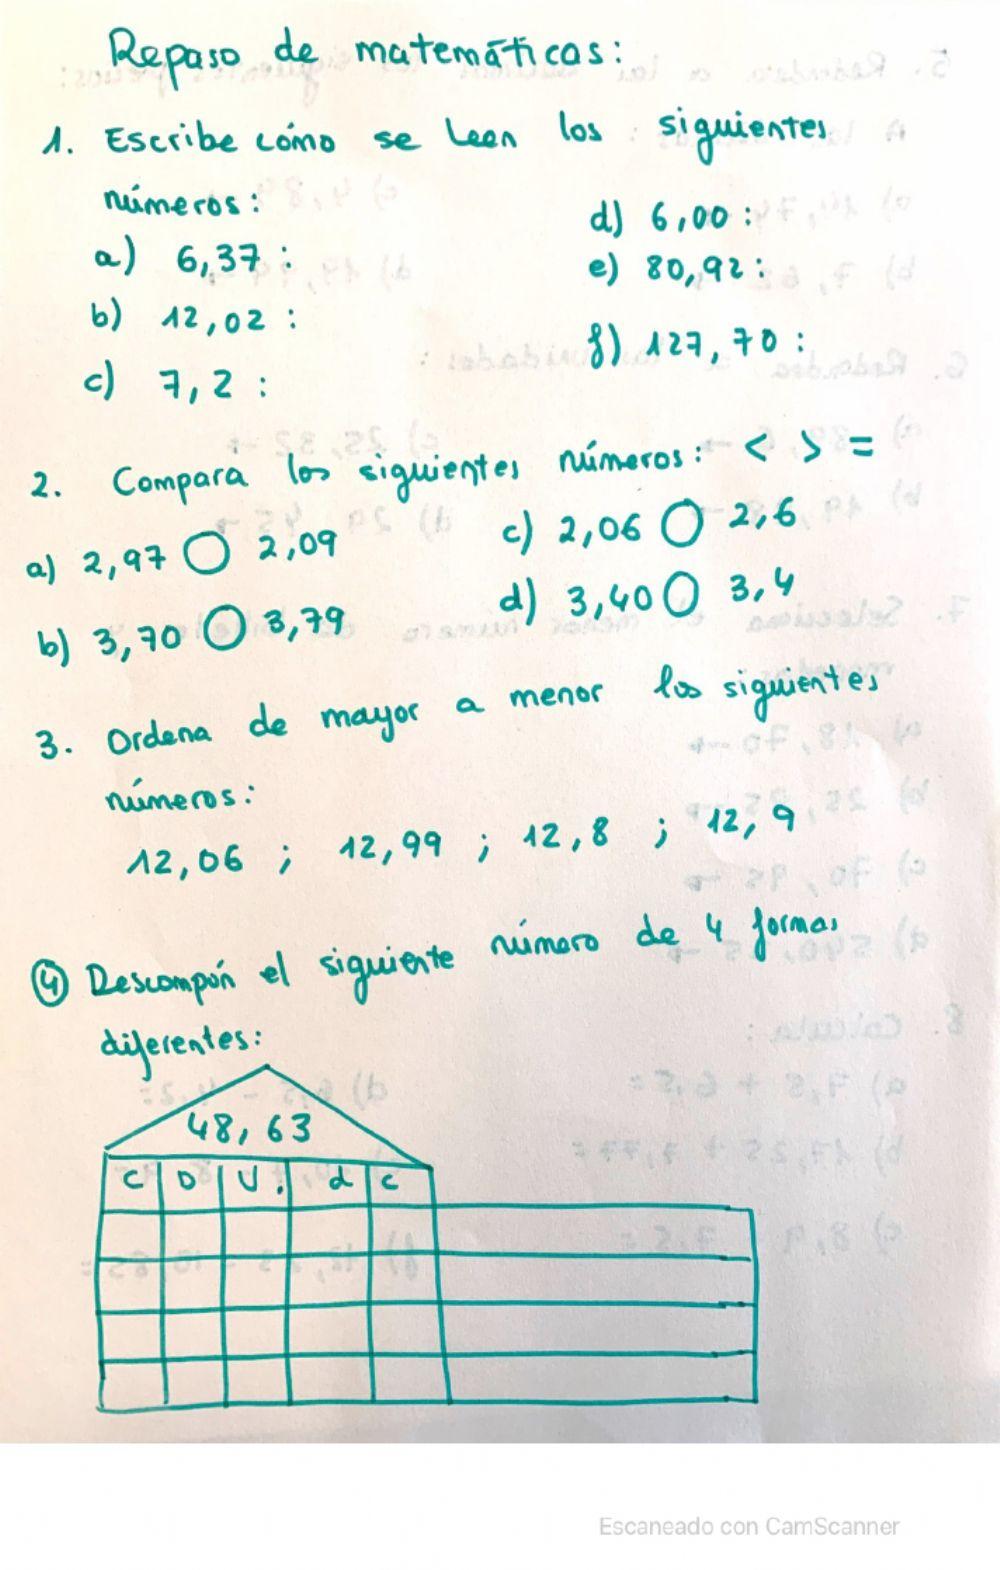 Repaso de matemáticas:
1. Escribe cómo se leen los siguientes
números:
a) 6,37 :
b) 12,02 :
c) 7,2 :
d) 6,00 :
e) 80,92 :
f) 127,70 :
2. Compara los siguientes números: < > =
a) 2,97 O 2,09
b) 3,70 O 3,79
c) 2,06 O 2,6
d) 3,40 O 3,4
3. Ordena de mayor a menor los siguientes
números:
12,06 ; 12,99 ; 12,8 ; 12,9
4 Descompón el siguiente número de 4 formas
diferentes:
48,63
C D U, d c
Escaneado con CamScanner